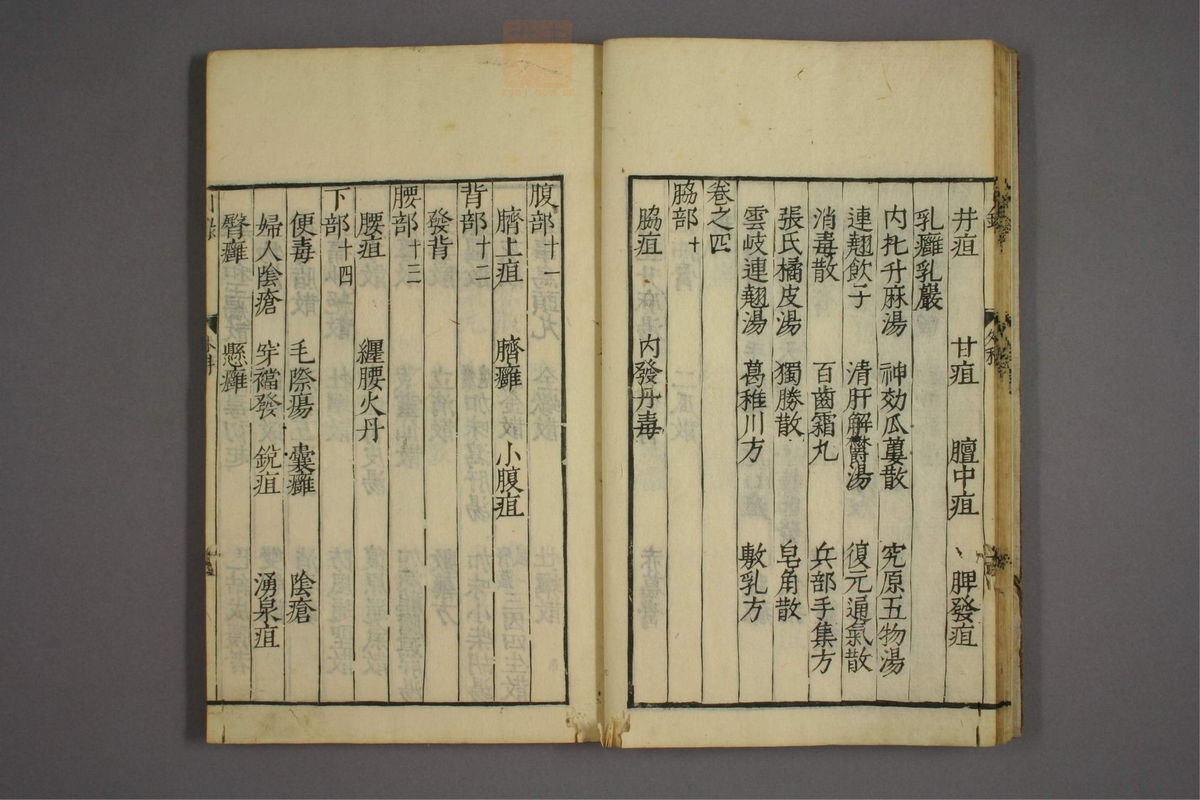 井疽 甘疽 膻中疽 脾發疽
乳癰乳巖
内托升麻湯 神効瓜蔞散 究原五物湯
連翹飲子 清肝解欝湯 復元通氣散
消毒散 百齒霜丸 兵部手集方
張氏橘皮湯 獨勝散 皂角散
雲岐連翹湯 葛稚川方 敷乳方
卷之四
脇部十
脇疽 内發丹毒
腹部十一
臍上疽 臍癰 小腹疽
背部十二
發背
腰部十三
腰疽 纒腰火丹
下部十四
便毒 毛際瘍 囊癰 陰瘡
婦人陰瘡 穿襠發 銳疽 湧泉疽
臀癰 懸癰